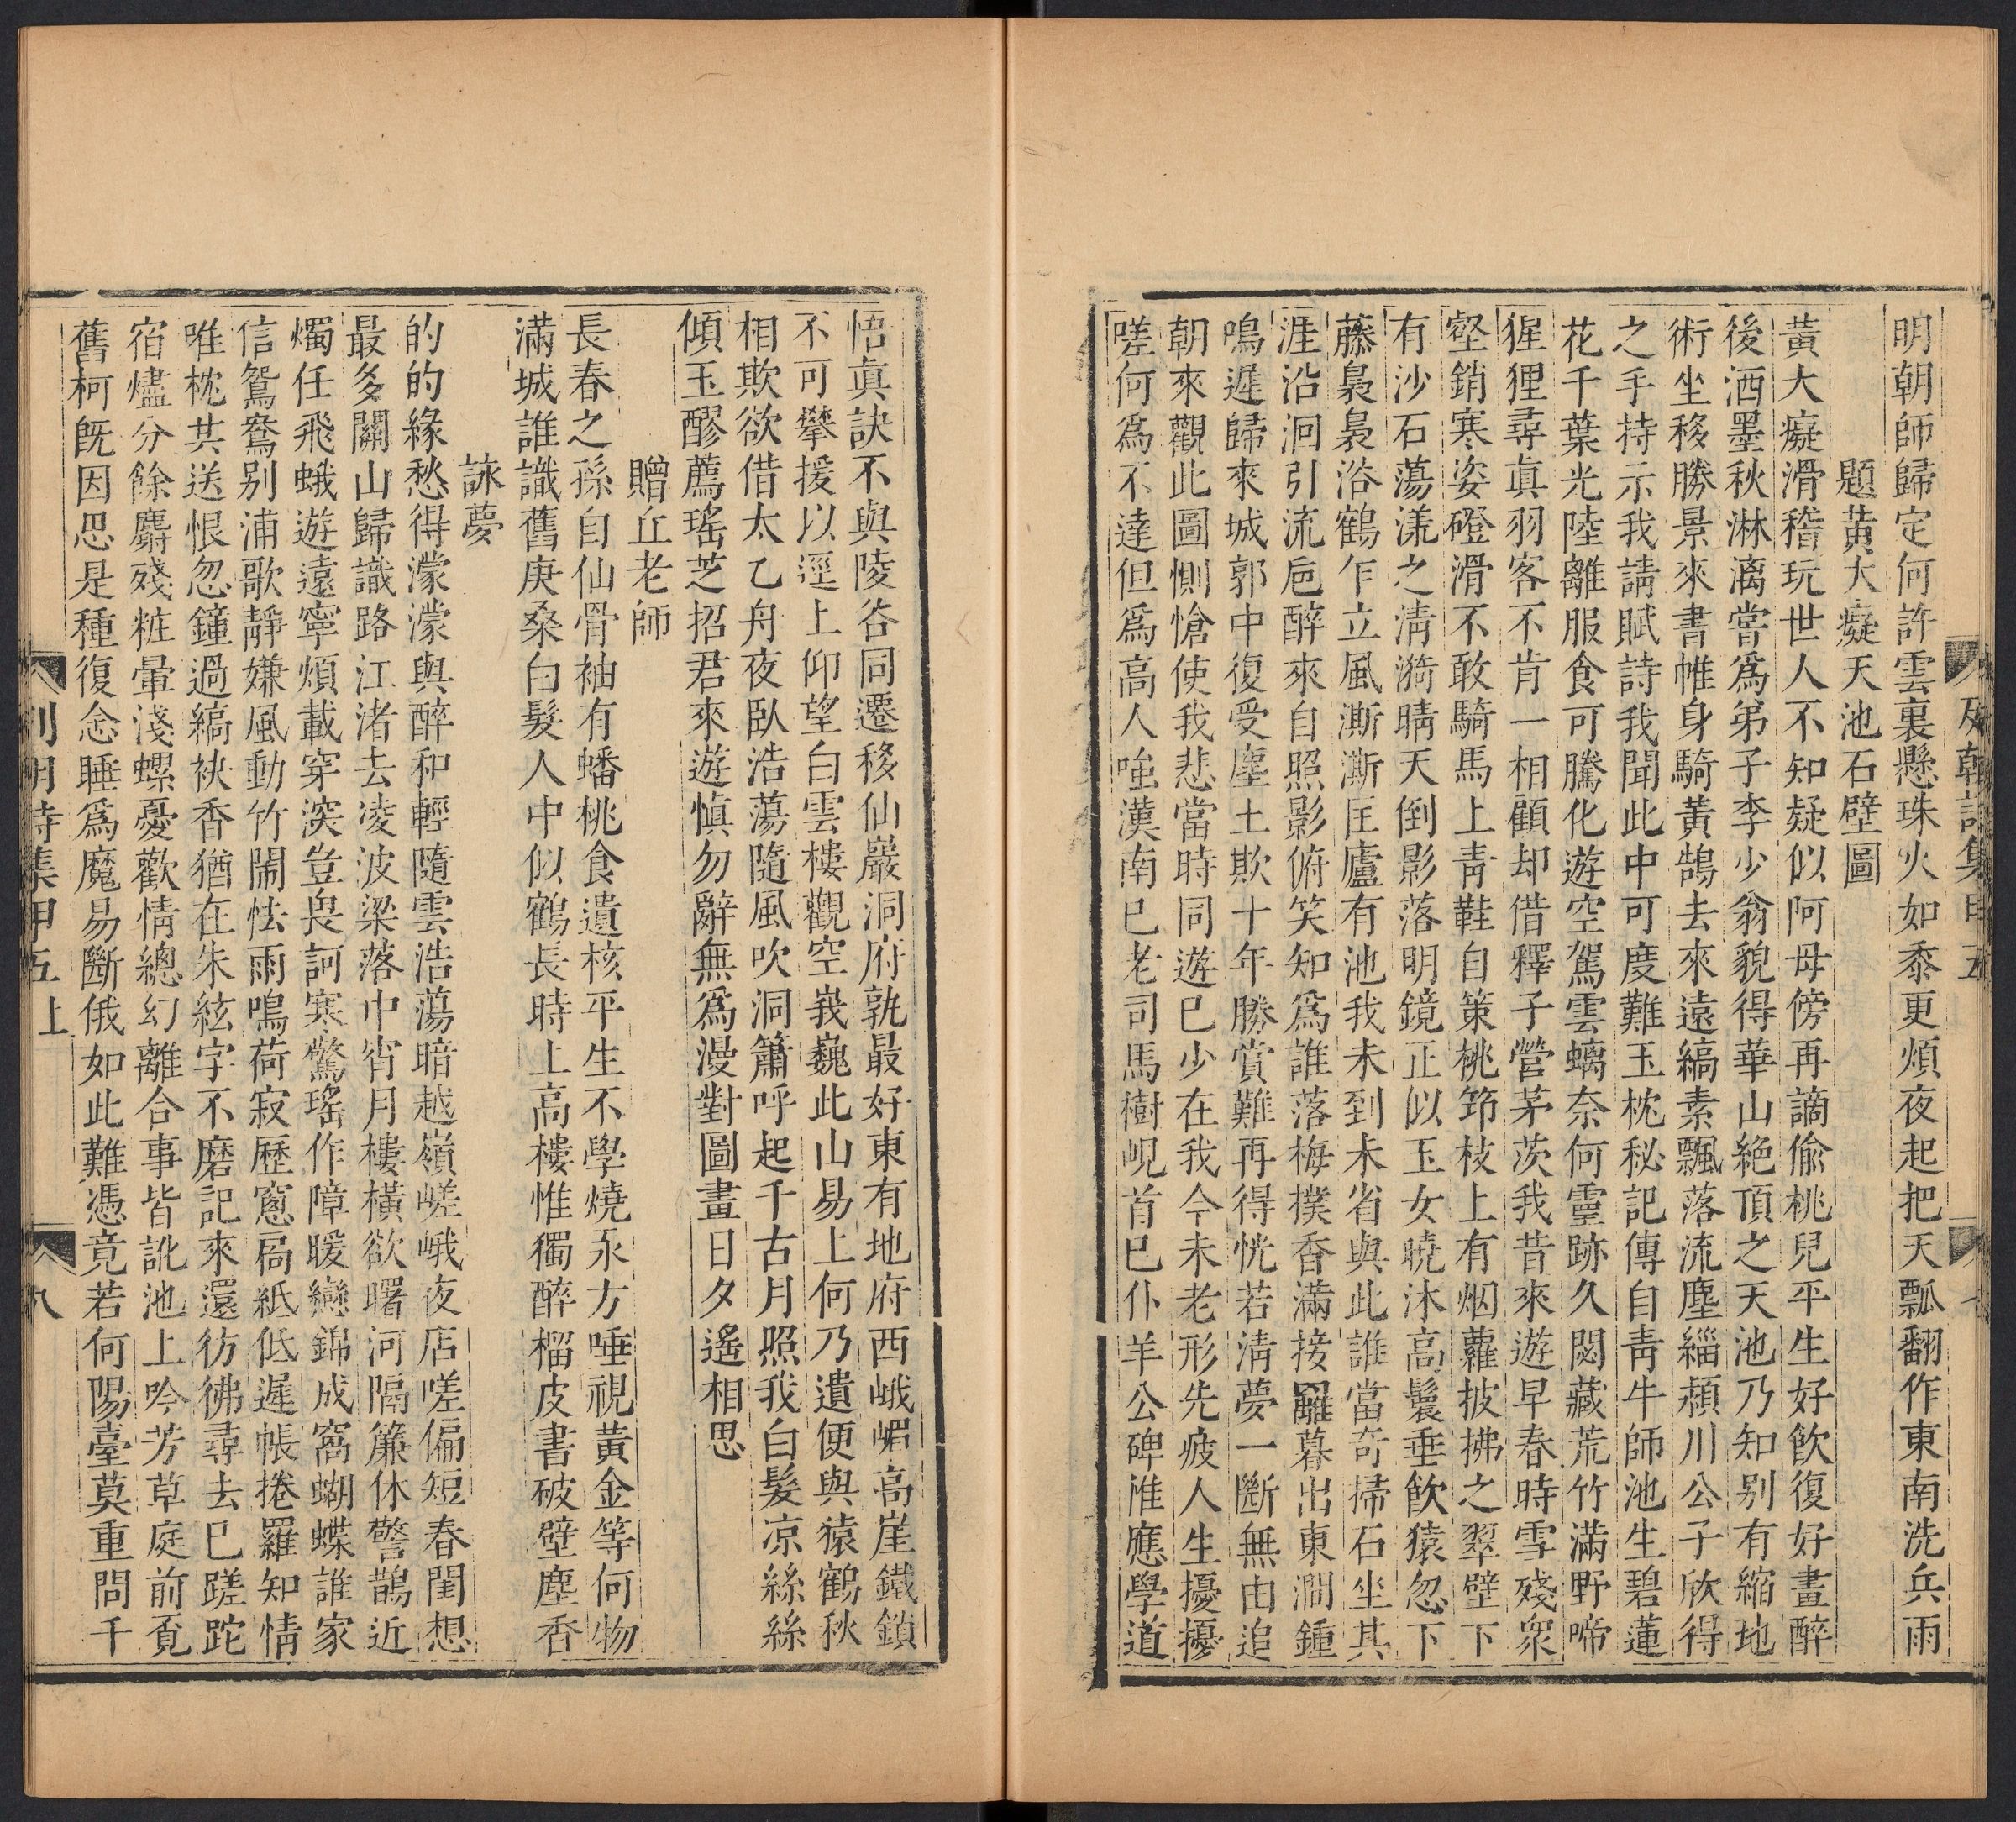 明朝師歸定何許雲裏懸珠火如黍更煩夜起把天瓢翻作東南洗兵雨
題黃大癡天池石壁圖
黃大癡滑稽玩世人不知疑似阿母傍再謫偷桃兒平生好飲復好畫醉
後洒墨秋淋漓嘗爲弟子李少翁貌得華山絶頂之天池乃知别有縮地
術坐移勝景來書帷身騎黃鵠去來遠縞素飄落流塵緇潁川公子欣得
之手持示我請賦詩我聞此中可度難玉枕秘記傳自靑牛師池生碧蓮
花千葉光陸離服食可騰化遊空駕雲螭奈何靈跡久閟藏荒竹滿野啼
猩狸尋眞羽客不肯一相顧却借釋子營茅茨我昔來遊早春時雪殘衆
壑銷寒姿磴滑不敢騎馬上靑鞋自策桃笻枝上有烟蘿披拂之翠壁下
有沙石蕩漾之淸漪晴天倒影落明鏡正似玉女曉沐高鬟垂飲猿忽下
藤裊裊浴鶴乍立風澌澌匡廬有池我未到未省與此誰當奇掃石坐其
涯沿洄引流巵醉來自照影俯笑知爲誰落梅撲香滿接䍦暮出東澗鍾
鳴遲歸來城郭中復受塵土欺十年勝賞難再得恍若淸夢一斷無由追
朝來觀此圖惻愴使我悲當時同遊已少在我今未老形先疲人生擾擾
嗟何爲不達但爲高人嗤漢南已老司馬樹峴首已仆羊公碑惟應學道
悟眞訣不與陵谷同遷移仙巖洞府孰最好東有地府西峨嵋高崖鐵鎖
不可攀援以逕上仰望白雲樓觀空峩巍此山易上何乃遺便與猿鶴秋
相欺欲借太乙舟夜臥浩蕩隨風吹洞簫呼起千古月照我白髮凉絲絲
傾玉醪薦瑤芝招君來遊愼勿辭無爲漫對圖畫日夕遙相思
贈丘老師
長春之孫自仙骨袖有蟠桃食遺核平生不學燒汞方唾視黃金等何物
滿城誰識舊庚桑白髮人中似鶴長時上高樓惟獨醉榴皮書破壁塵香
詠夢
的的緣愁得濛濛與醉和輕隨雲浩蕩暗越嶺嵯峨夜店嗟偏短春閨想
最多關山歸識路江渚去凌波梁落中宵月樓橫欲曙河隔簾休警鵲近
燭任飛蛾遊遠寧煩載穿深豈畏訶寒驚瑤作障暖戀錦成窩蝴蝶誰家
信鴛鴦别浦歌靜嫌風動竹閙怯雨鳴荷寂歷窻扃紙低遲帳捲羅知情
唯枕共送恨忽鐘過縞袂香猶在朱絃字不磨記來還彷彿尋去已蹉跎
宿燼分餘麝殘粧暈淺螺憂歡情總幻離合事皆訛池上吟芳草庭前覓
舊柯旣因思是種復念睡爲魔易斷俄如此難憑竟若何陽臺莫重問千
列朝詩集甲五
列朝詩集甲五上
八